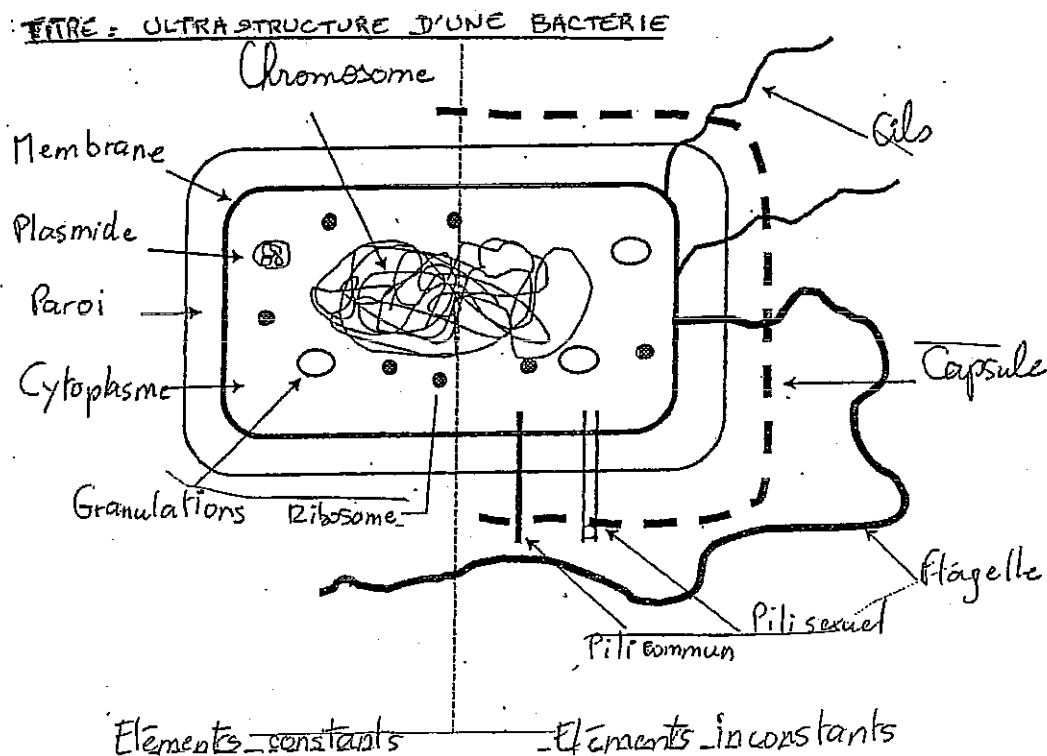 TITRE : ULTRASTRUCTURE D'UNE BACTERIE
Chromosome
Cils
Membrane
Plasmide
Paroi
Capsule
Cytoplasme
Granulations
Ribosome
Flagelle
Pili sexuel
Pili commun
Eléments constants
Eléments inconstants